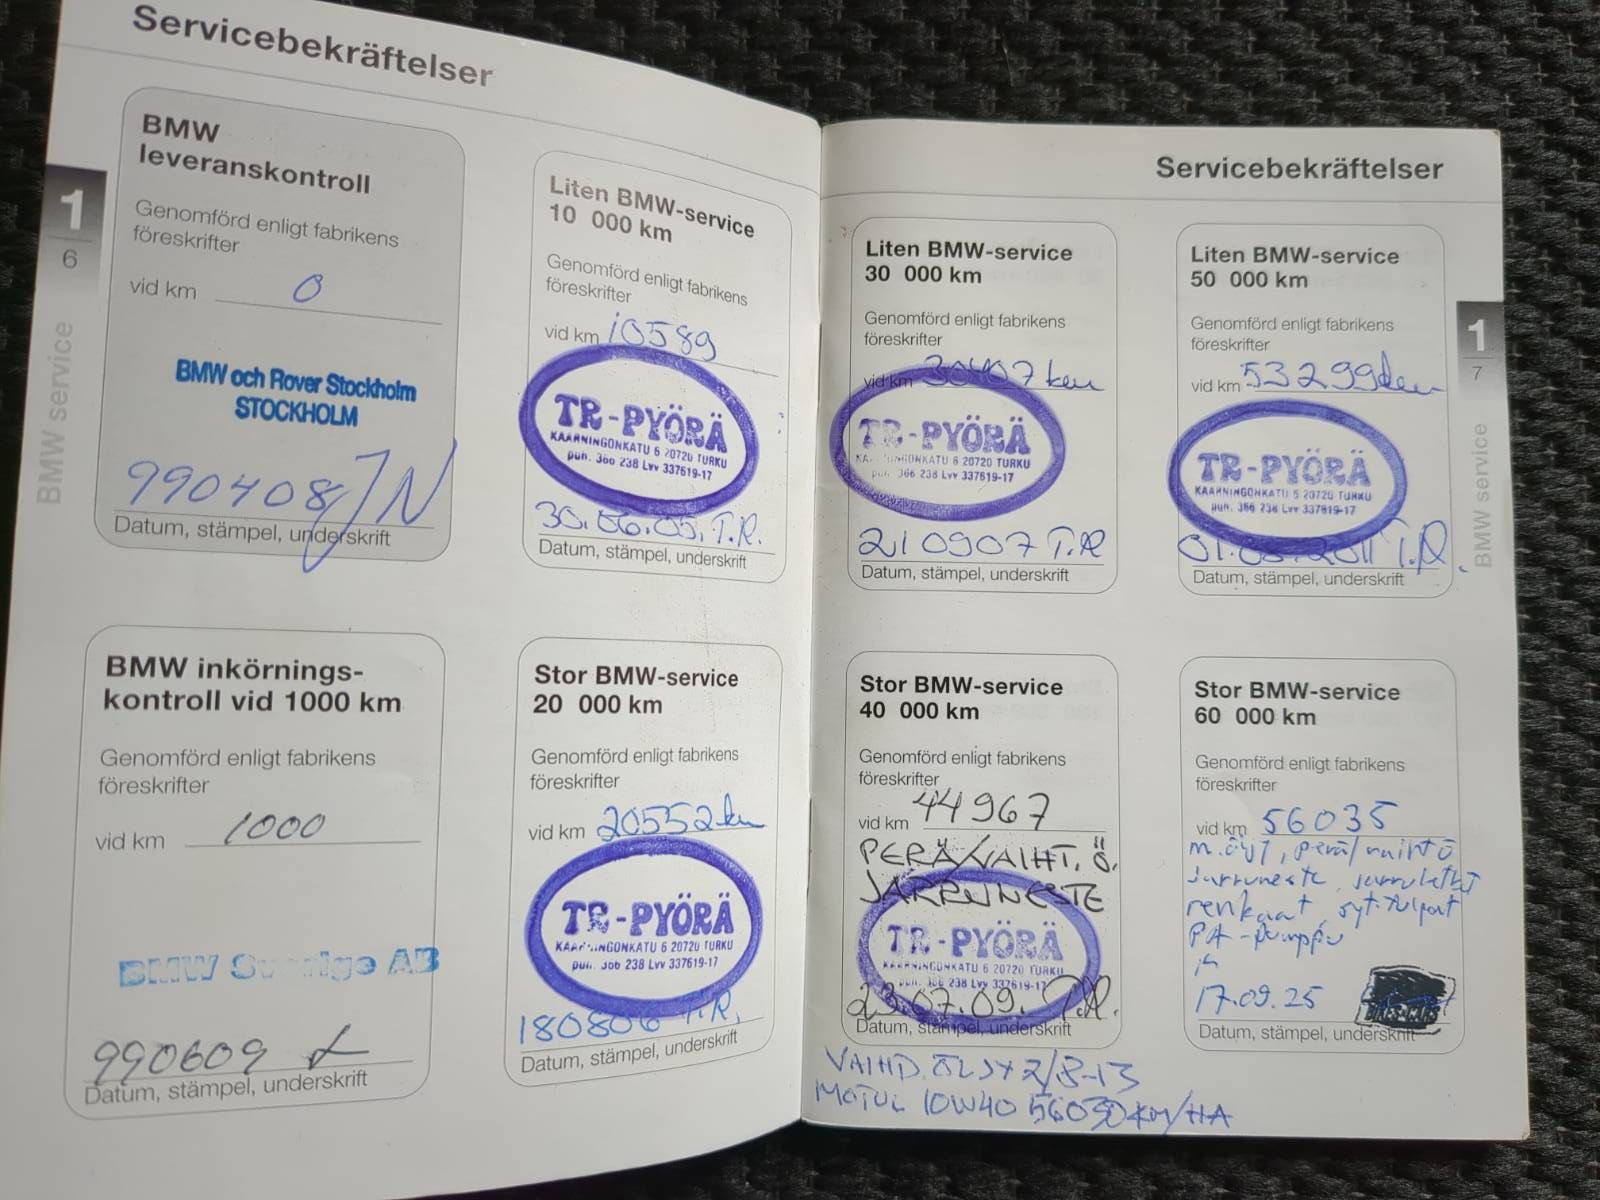 Servicebekräftelser
BMW
leveranskontroll
Genomförd enligt fabrikens
föreskrifter
vid km 0
BMW och Rover Stockholm
STOCKHOLM
990408 JN
Datum, stämpel, underskrift
1
6
BMW service
Liten BMW-service
10 000 km
Genomförd enligt fabrikens
föreskrifter
vid km 10589
TR-PYÖRÄ
KAARNINGONKATU 6 20720 TURKU
puh. 366 238 Lvv 337619-17
30.06.05. T.R.
Datum, stämpel, underskrift
BMW inkörnings-
kontroll vid 1000 km
Genomförd enligt fabrikens
föreskrifter
vid km 1000
BMW Sverige AB
990609
Datum, stämpel, underskrift
Stor BMW-service
20 000 km
Genomförd enligt fabrikens
föreskrifter
vid km 20552 km
TR-PYÖRÄ
KAARNINGONKATU 6 20720 TURKU
puh. 366 238 Lvv 337619-17
180806 T.R.
Datum, stämpel, underskrift
Servicebekräftelser
Liten BMW-service
30 000 km
Genomförd enligt fabrikens
föreskrifter
vid km 30407 km
TR-PYÖRÄ
KAARNINGONKATU 6 20720 TURKU
puh. 366 238 Lvv 337619-17
210907 T.R
Datum, stämpel, underskrift
Liten BMW-service
50 000 km
Genomförd enligt fabrikens
föreskrifter
vid km 53299 km
TR-PYÖRÄ
KAARNINGONKATU 6 20720 TURKU
puh. 366 238 Lvv 337619-17
2011 T.R.
Datum, stämpel, underskrift
1
7
BMW service
Stor BMW-service
40 000 km
Genomförd enligt fabrikens
föreskrifter
vid km 44967
PERÄ/VAIHT. Ö.
JARRUNESTE
TR-PYÖRÄ
KAARNINGONKATU 6 20720 TURKU
puh. 366 238 Lvv 337619-17
23.07.09. T.R.
Datum, stämpel, underskrift
VAIHD. ÖLJY 2/8-13
MOTUL 10W40 56030 KM/HA
Stor BMW-service
60 000 km
Genomförd enligt fabrikens
föreskrifter
vid km 56035
m.öljy, perä/vaihtö
jarruneste, jarruletkut
renkaat, syt.tulpat
PA-pumppu
17.09.25
BIKES-CARS
Datum, stämpel, underskrift